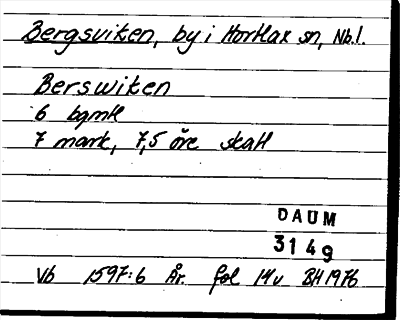 Bergsviken, by i Hortlax sn, Nb.l.
Berswiken
6 bgmtl
7 mark, 7,5 öre skatt
DAUM
3149
Vb 1597:6 År. fol 14v BH 1976